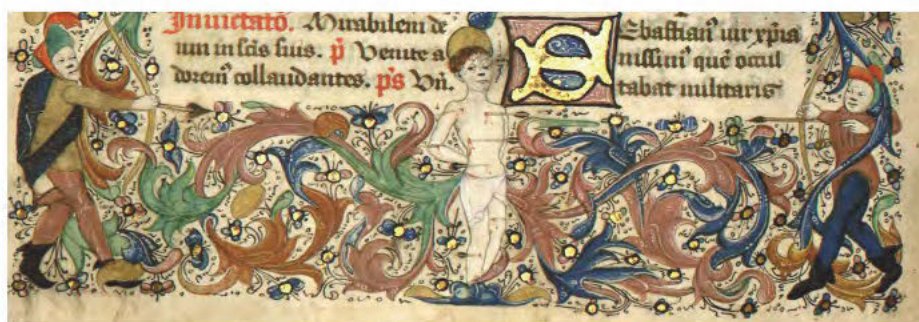 Inuictatō. Mirabilem de
um in scīs suis. p̄ Venite a
dorem̄ collaudantes. p̄s Vn̄.
SEbastian᷒ uir xp̄ia
nissim᷒ quē occul
tabat militaris